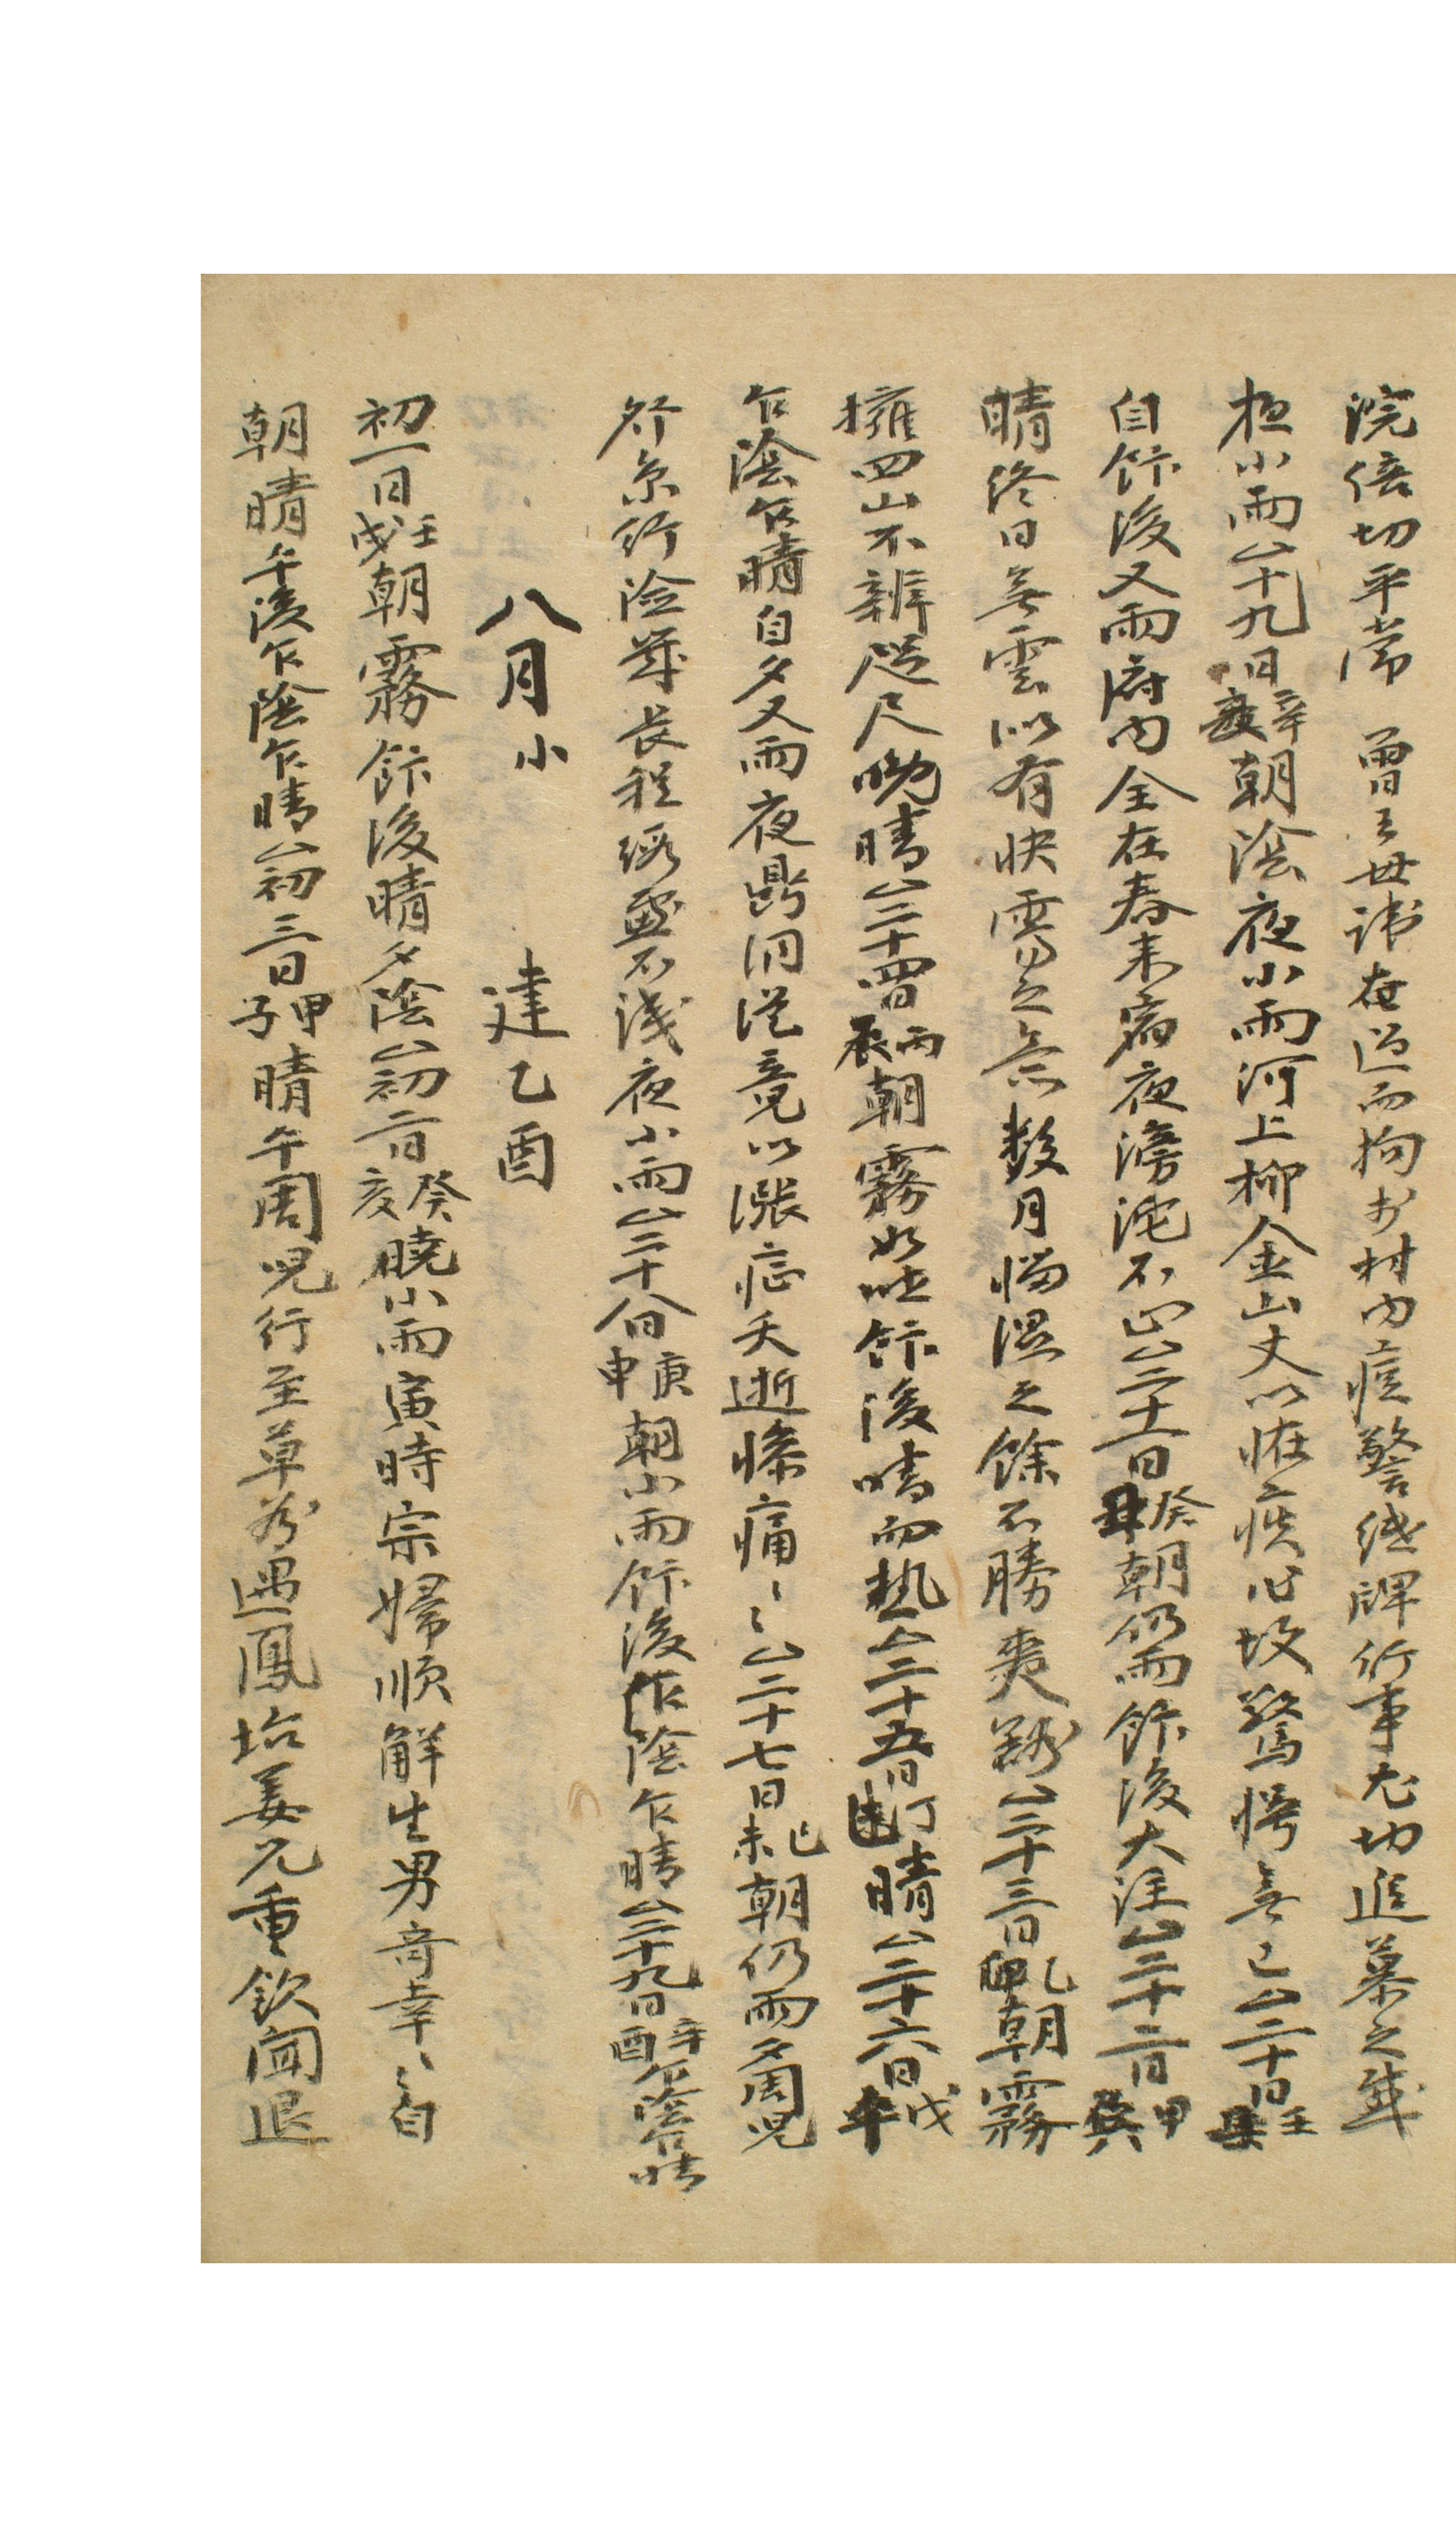 浣倍切平常 曾王母諱在邇而拘於村內痘警繼牌行事尤切追慕之感
極小雨△十九日辛亥朝陰夜小雨河上柳金山丈以恠疾化故驚愕無已△二十日壬
自飰後又雨府內全在春來宿夜滂沱不止△二十一日癸丑朝仍雨飰後大注△二十二日甲寅
晴終日無雲似有快霽之意數月惱濕之餘不勝爽豁△二十三日乙卯朝霧
擁四山不辨咫尺晩晴△二十四日丙辰朝霧如昨飰後晴而熱△二十五日丁巳晴△二十六日戊午
乍陰乍晴自夕又雨夜鼎洞從竟以漲症夭逝慘痛〻〻△二十七日己未朝仍雨夕周兒
發京行險莽長程 慮不淺夜小雨△二十八日庚申朝小雨飰後乍陰乍晴△二十九日辛酉乍陰乍晴
八月小 建乙酉
初一日壬戌朝霧飰後晴夕陰△初二日癸亥曉小雨寅時宗婦順解生男奇幸〻〻自
朝晴午後乍陰乍晴△初三日甲子晴午周兒行至草谷遇鳳坮姜兄重欽聞退